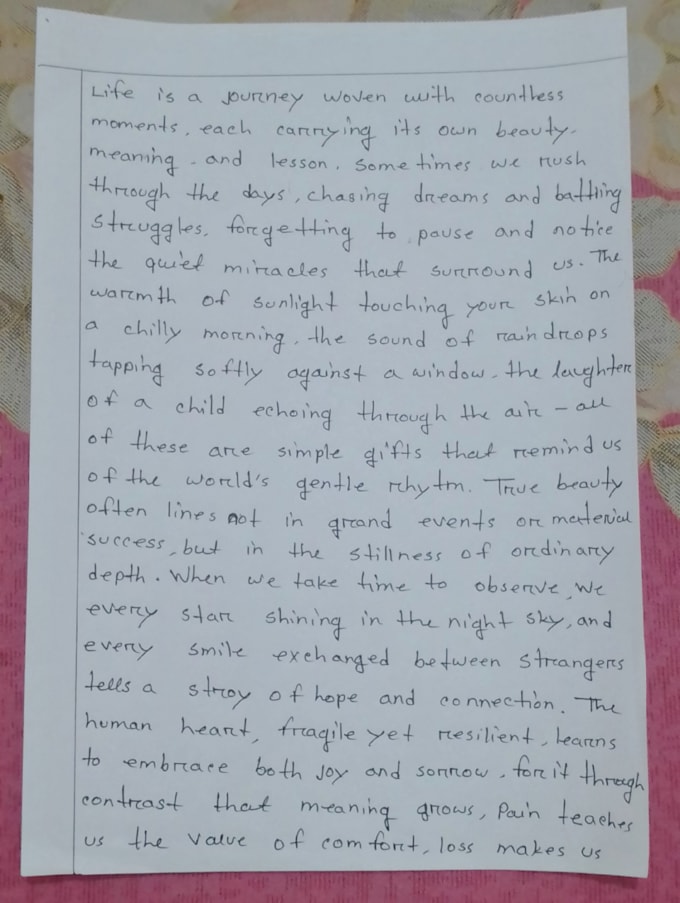 Life is a journey woven with countless
moments, each carrying its own beauty.
meaning. and lesson. Sometimes we rush
through the days, chasing dreams and battling
struggles, forgetting to pause and notice
the quiet miracles that surround us. The
warmth of sunlight touching your skin on
a chilly morning, the sound of raindrops
tapping softly against a window. the laughter
of a child echoing through the air – all
of these are simple gifts that remind us
of the world's gentle rhytm. True beauty
often lines not in grand events or material
success, but in the stillness of ordinary
depth. When we take time to observe, we
every star shining in the night sky, and
every smile exchanged between strangers
tells a stroy of hope and connection. The
human heart, fragile yet resilient, learns
to embrace both joy and sorrow, for it through
contrast that meaning grows, Pain teaches
us the value of comfort, loss makes us